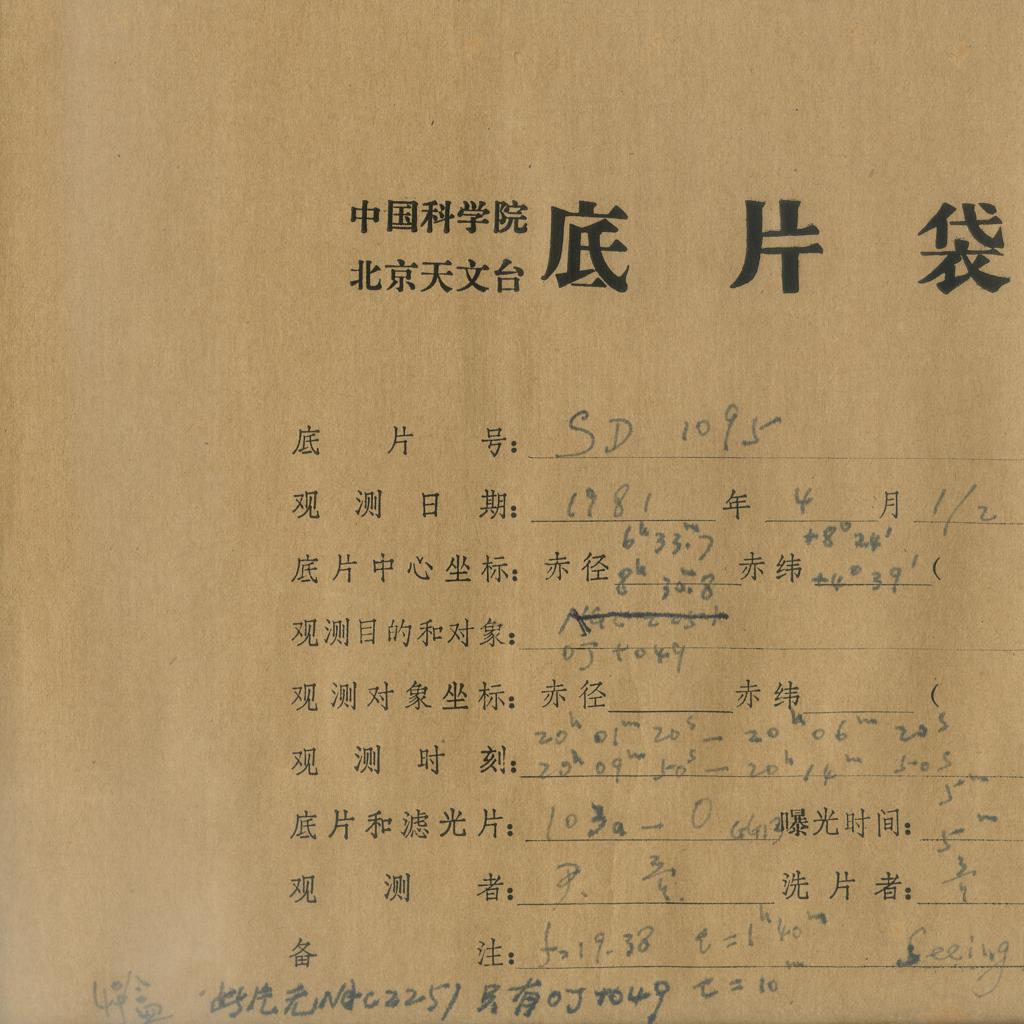 中国科学院
北京天文台
底片袋
底片号: SD 1095
观测日期: 1981 年 4 月 1/2
6ʰ 33ᵐ.7 +8° 24′
底片中心坐标: 赤径 8ʰ 30ᵐ.8 赤纬 +4° 39′ (
观测目的和对象: NGC 2251
OJ+049
观测对象坐标: 赤径 赤纬 (
20ʰ 01ᵐ 20ˢ — 20ʰ 06ᵐ 20ˢ
观测时刻: 20ʰ 09ᵐ 50ˢ — 20ʰ 14ᵐ 50ˢ
5ᵐ
底片和滤光片: 103a-O GG13 曝光时间: 5ᵐ
观测者: 洗片者:
备注: f=19.38 t=1ʰ40ᵐ Seeing
此片无NGC2251 只有OJ+049 t=10ᵐ